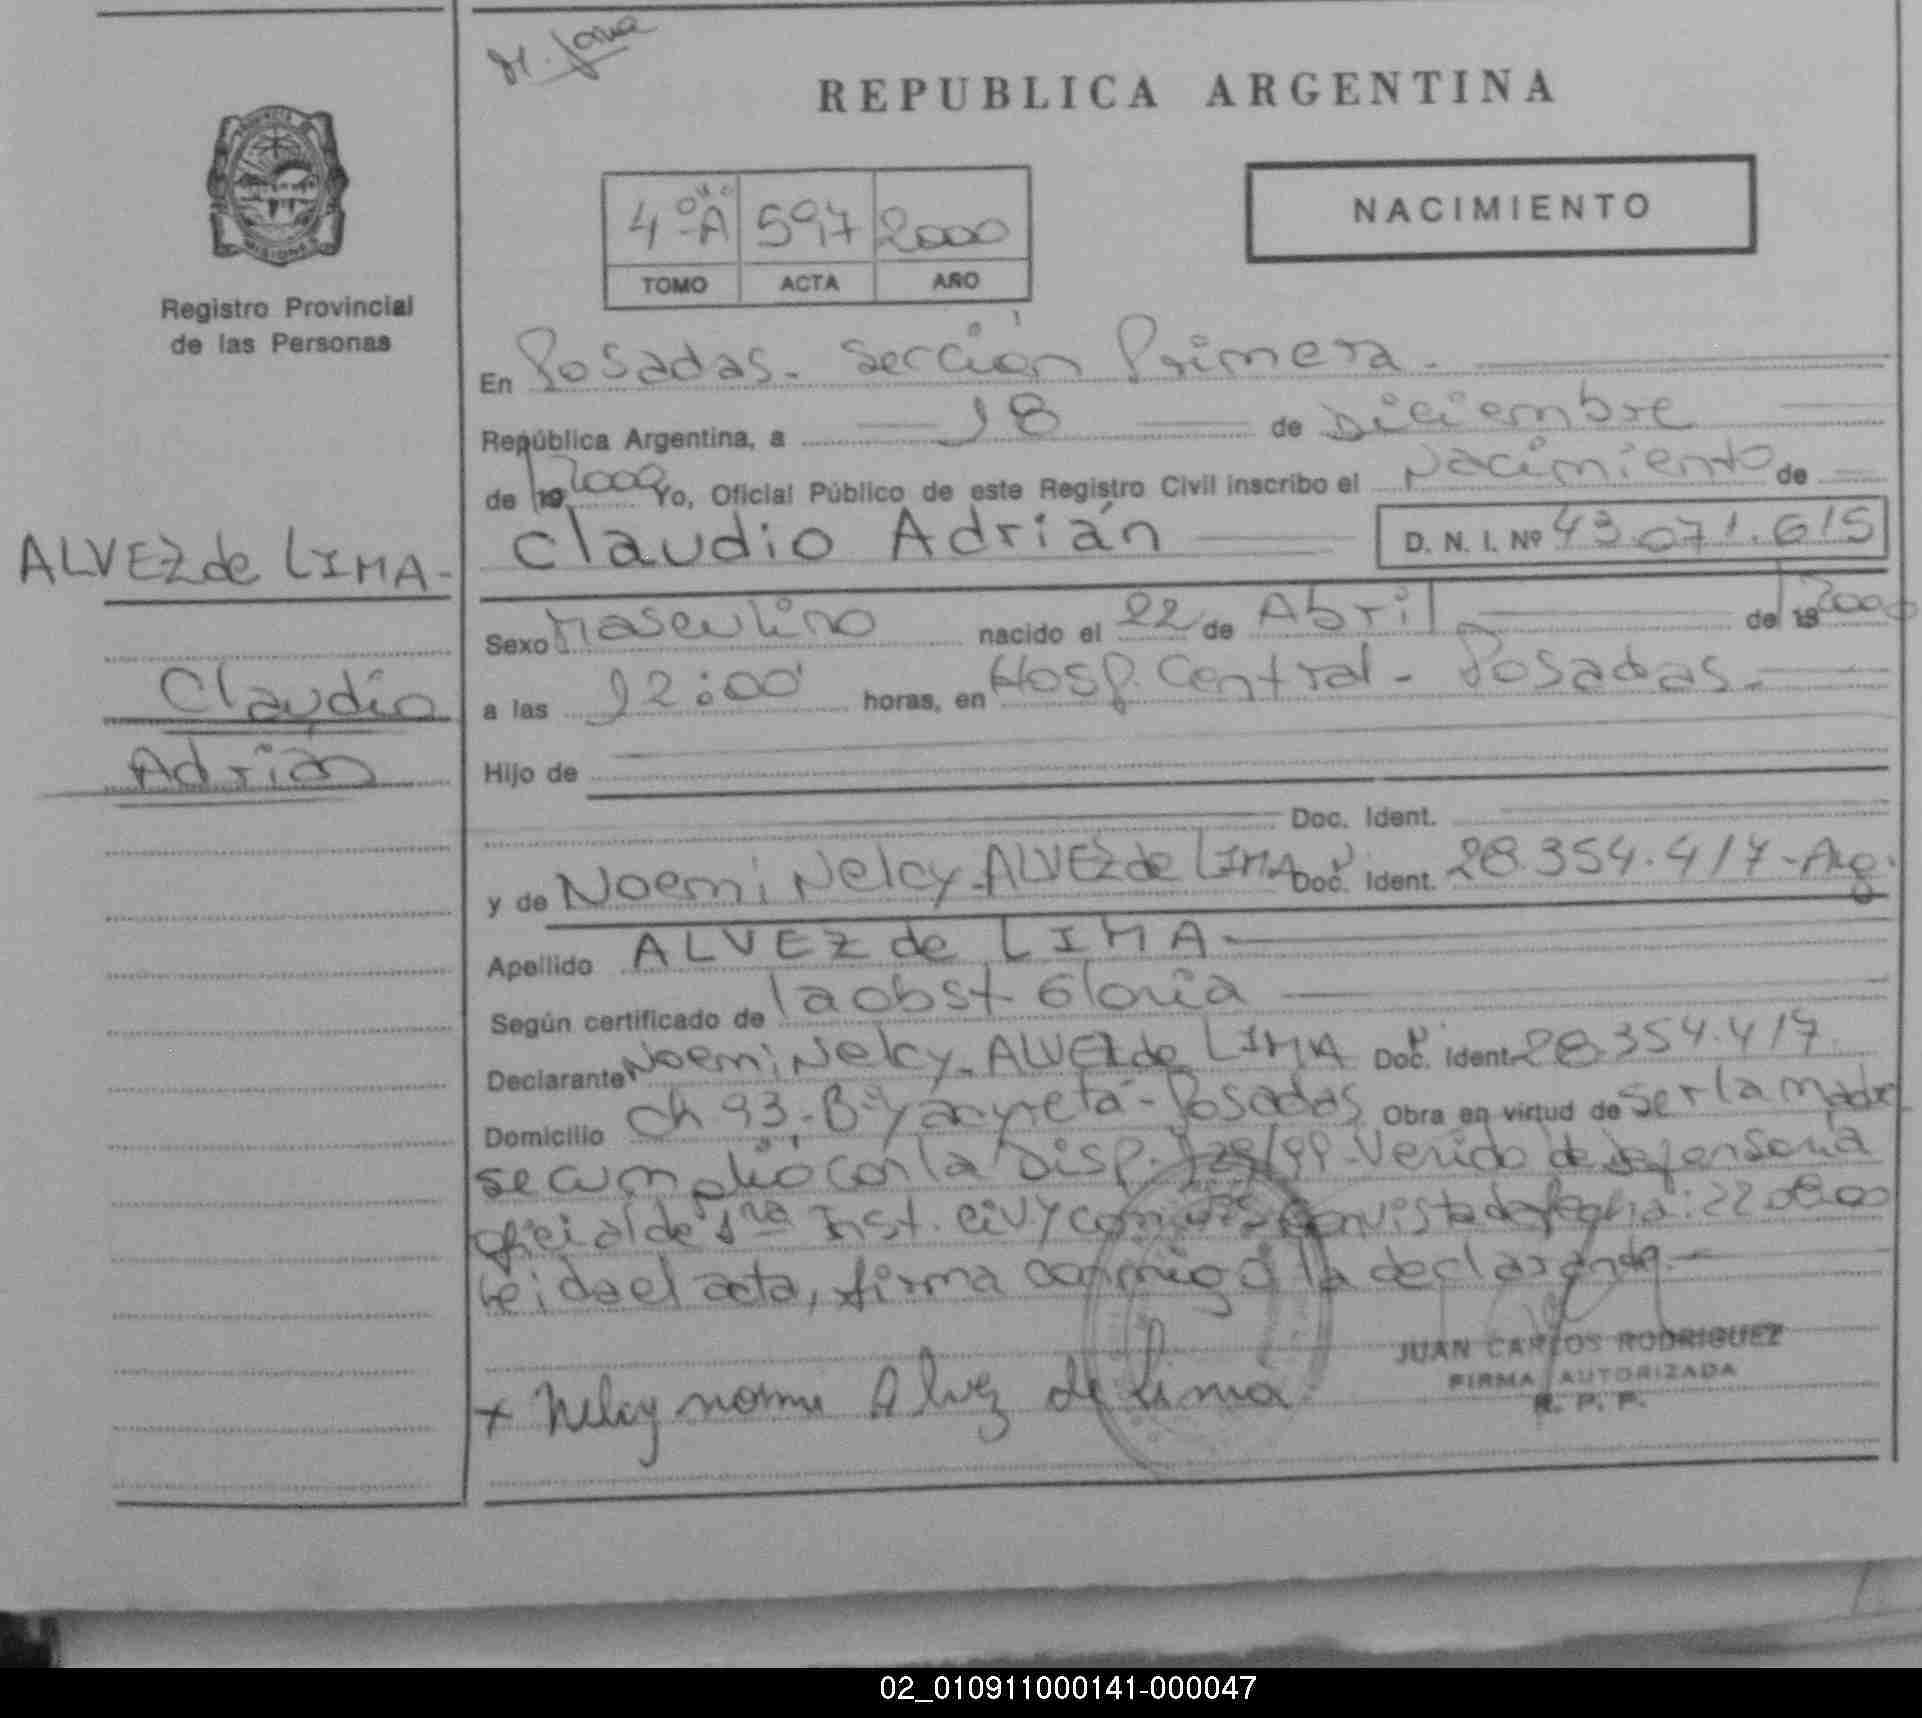 REPUBLICA ARGENTINA
PROVINCIA
MISIONES
Registro Provincial
de las Personas
4ºA 597 2000
TOMO ACTA AÑO
NACIMIENTO
En Posadas. Sección Primera.
República Argentina, a 18 de Diciembre
de 19 2000 Yo, Oficial Público de este Registro Civil inscribo el Nacimiento de
Claudio Adrián D. N. I. Nº 43.071.615
ALVEZ de LIMA-
Claudio
Adrián
Sexo Masculino nacido el 22 de Abril de 19 2000
a las 12:00 horas, en Hosp. Central - Posadas.
Hijo de
Doc. Ident.
y de Noemi Nelcy ALVEZ de LIMA Doc. Ident. 28.354.417-Arg.
Apellido ALVEZ de LIMA
Según certificado de la obst. Gloria
Declarante Noemi Nelcy ALVEZ de LIMA Doc. Ident. 28.354.417
Domicilio Ch 93-Bº Yacyretá-Posadas Obra en virtud de ser la madre
se cumplió con la Disp. 128/99-Venido de Defensoria
oficial de 1ra Inst. Civ y con vista de fecha: 22 08 00
Leida el acta, firma conmigo la declarante.
JUAN CARLOS RODRIGUEZ
FIRMA AUTORIZADA
R. P. P.
x Nelcy nomi Alvez de Lima
02_010911000141-000047